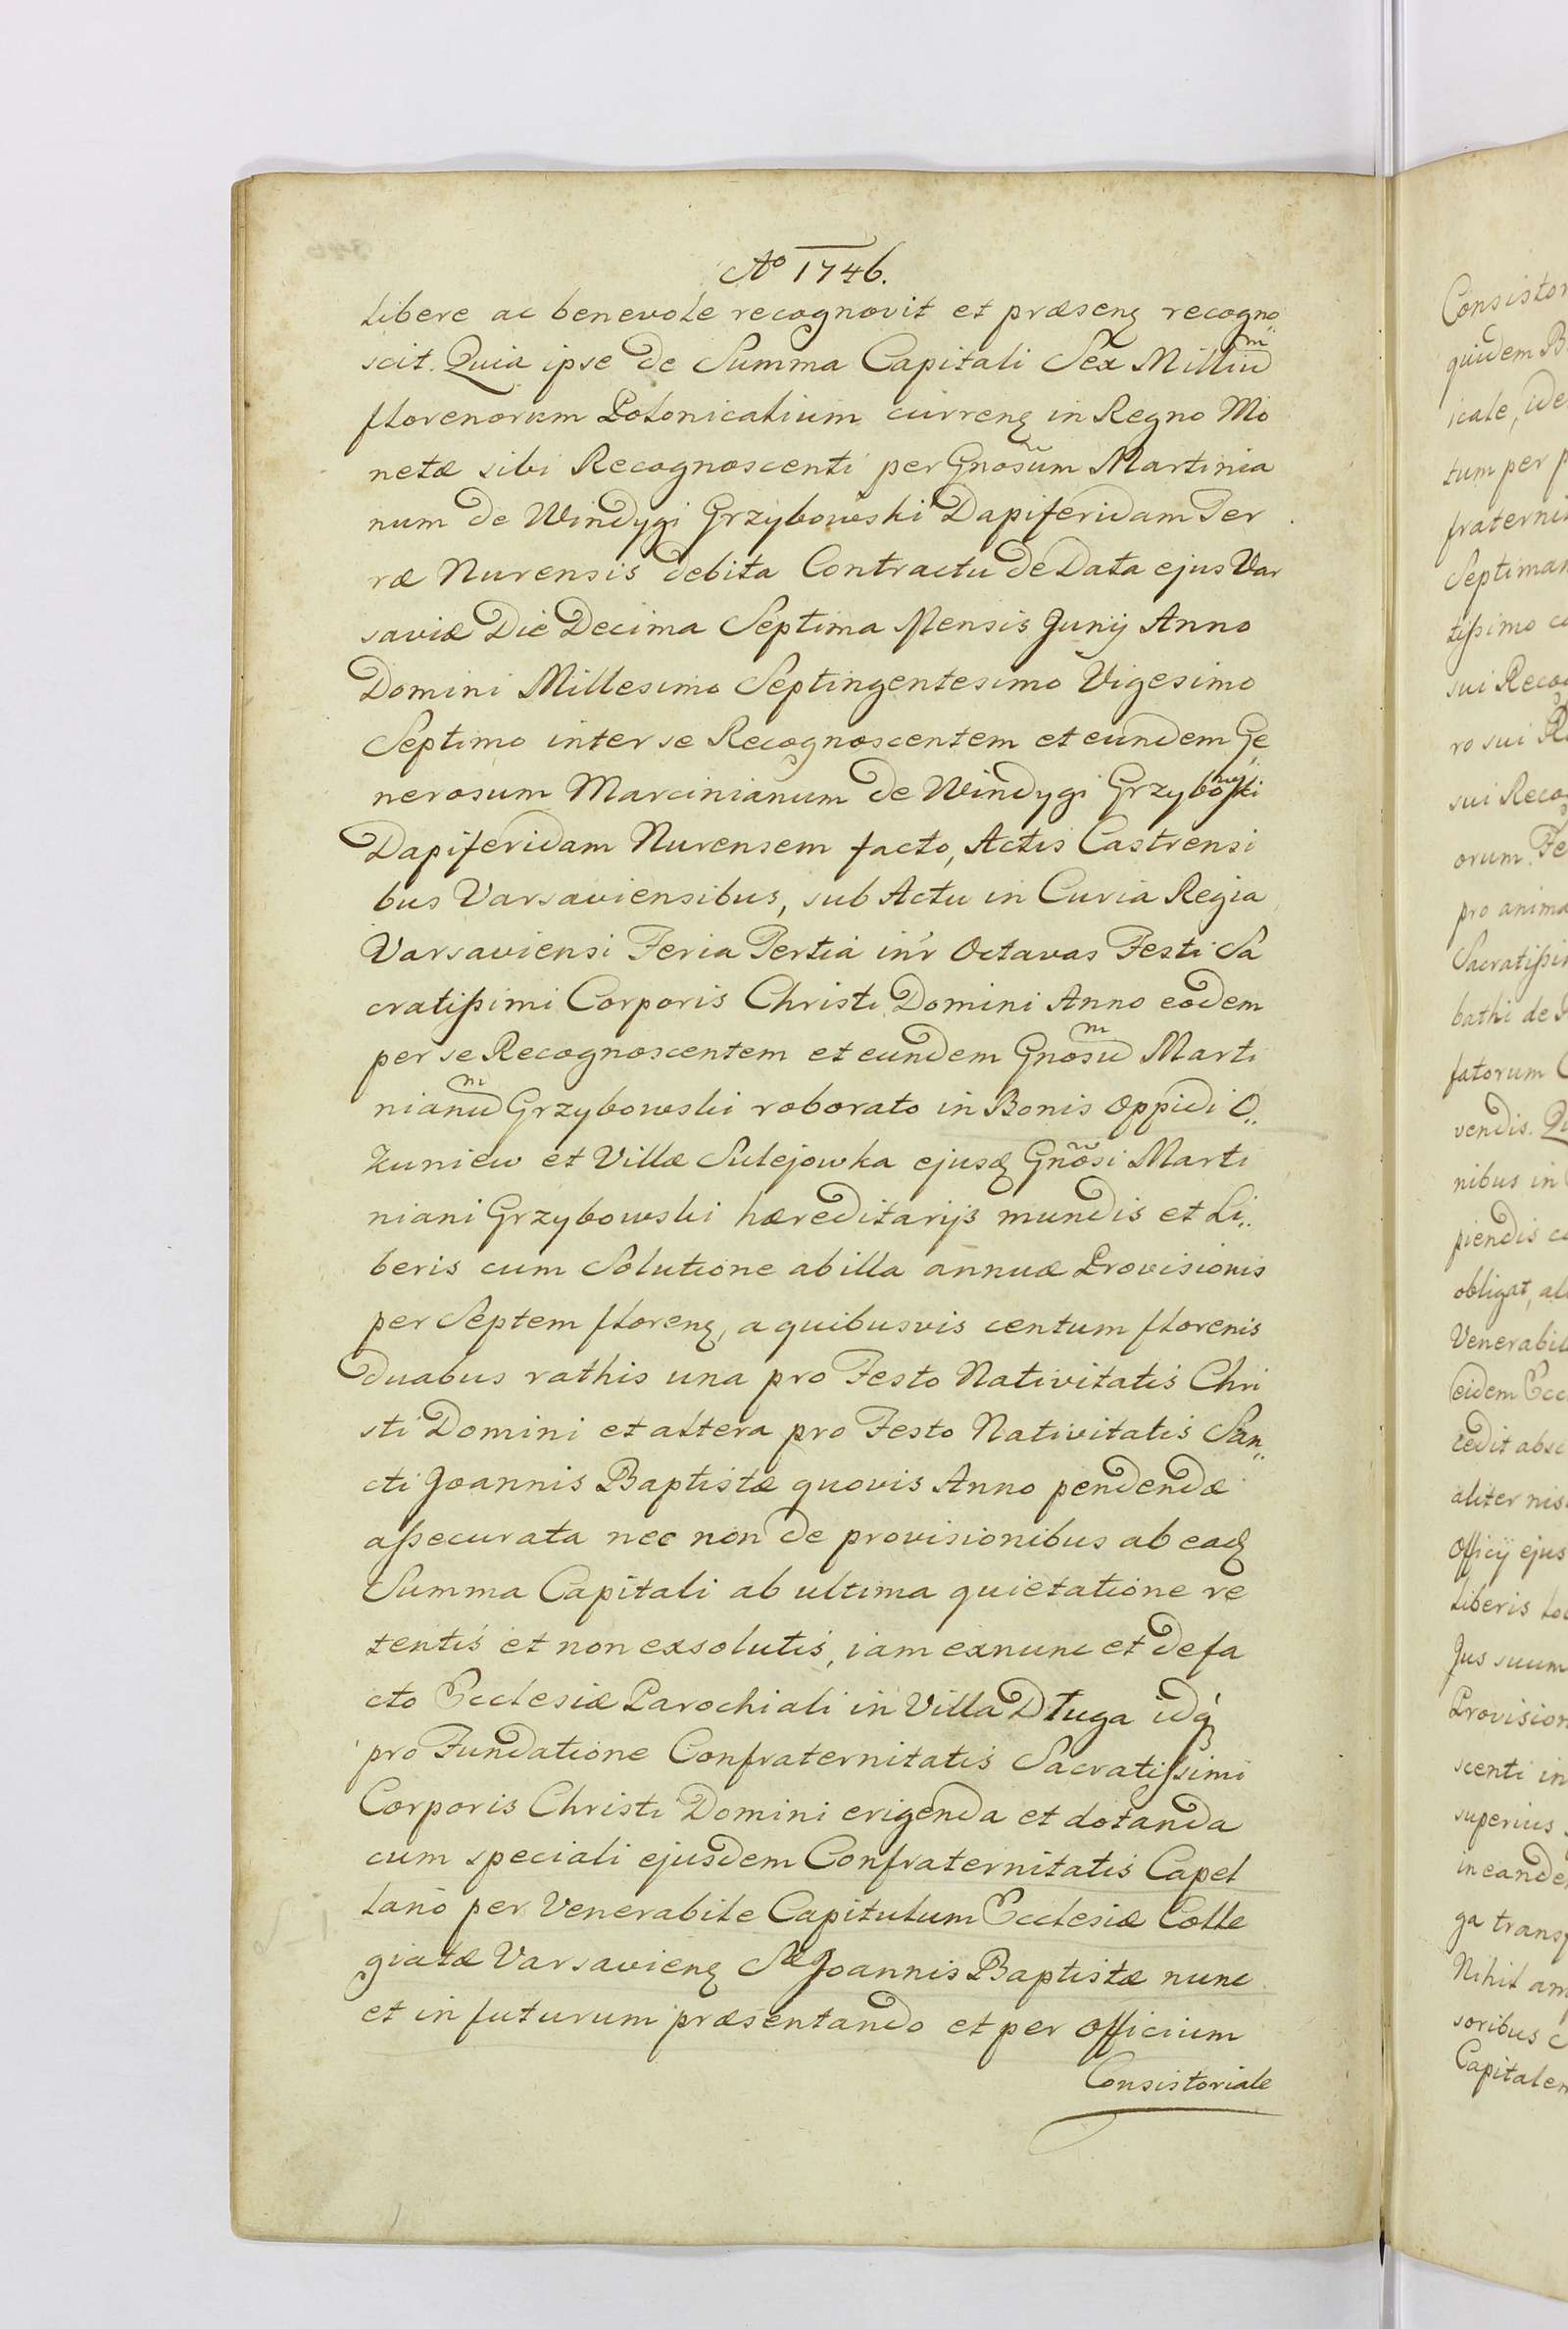 Aº 1746.
libere ac benevole recognovit et præsenꝫ recogno„
scit. Quia ipse de Summa Capitali Sex Milliūm
florenorum Polonicalium currenꝫ in Regno Mo
netæ sibi Recognoscenti per Gnosũm Martinia
num de Windygi Grzybowski Dapiferidam Ter
ræ Nurensis debita Contractu de Data ejus Var
saviæ Die Decima Septima Mensis Junij Anno
Domini Millesimo Septingentesimo Vigesimo
Septimo inter se Recognoscentem et eundem Ge„
nerosum Marcinianum de Windygi Grzybowski
Dapiferidam Nurensem facto, Actis Castrensi
bus Varsaviensibus, sub Actu in Curia Regia
Varsaviensi Feria Tertia in'r Octavas Festi Sa
cratißimi Corporis Christi Domini Anno eodem
per se Recognoscentem et eundem Gnosum Marti
nianum Grzybowski roborato in Bonis Oppidi O„
kuniew et Villæ Sulejowka ejusdꝫ Gnõsi Marti
niani Grzybowski hæreditarijs mundis et Li„
beris cum Solutione ab illa annuæ Provisionis
per Septem florenꝫ, a quibusvis centum florenis
duabus rathis una pro Festo Nativitatis Chri
sti Domini et altera pro Festo Nativitatis San„
cti Joannis Baptistæ quovis Anno pendendæ
aßecurata nec non de provisionibus ab eadꝫ
Summa Capitali ab ultima quietatione re
tentis et non exsolutis, iam exnunc et defa
cto Ecclesiæ Parochiali in Villa Długa idq́
pro Fundatione Confraternitatis Sacratißimi
Corporis Christi Domini erigenda et dotanda
cum speciali ejusdem Confraternitatis Capel
lano per Venerabile Capitulum Ecclesiæ Colle
giatæ Varsavienꝫ Sti Joannis Baptistæ nunc
et in futurum præsentando et per Officium
Consistoriale
Consistor
quidem
icale, ide
tum per p
fraterni
Septiman
tißimo
sui Recog
ro sui
sui Recog
orum. Fe
pro anima
Sacratißi
bathi de
fatorum C
vendis. Qu
nibus in
piendis
obligat, al
Venerabil
eidem Ecc
cedit abs
aliter nis
Officij ejus
liberis
Jus suum
Provision
scenti in
superius
in eande
ga transf
Nihil am
soribus
Capitalem